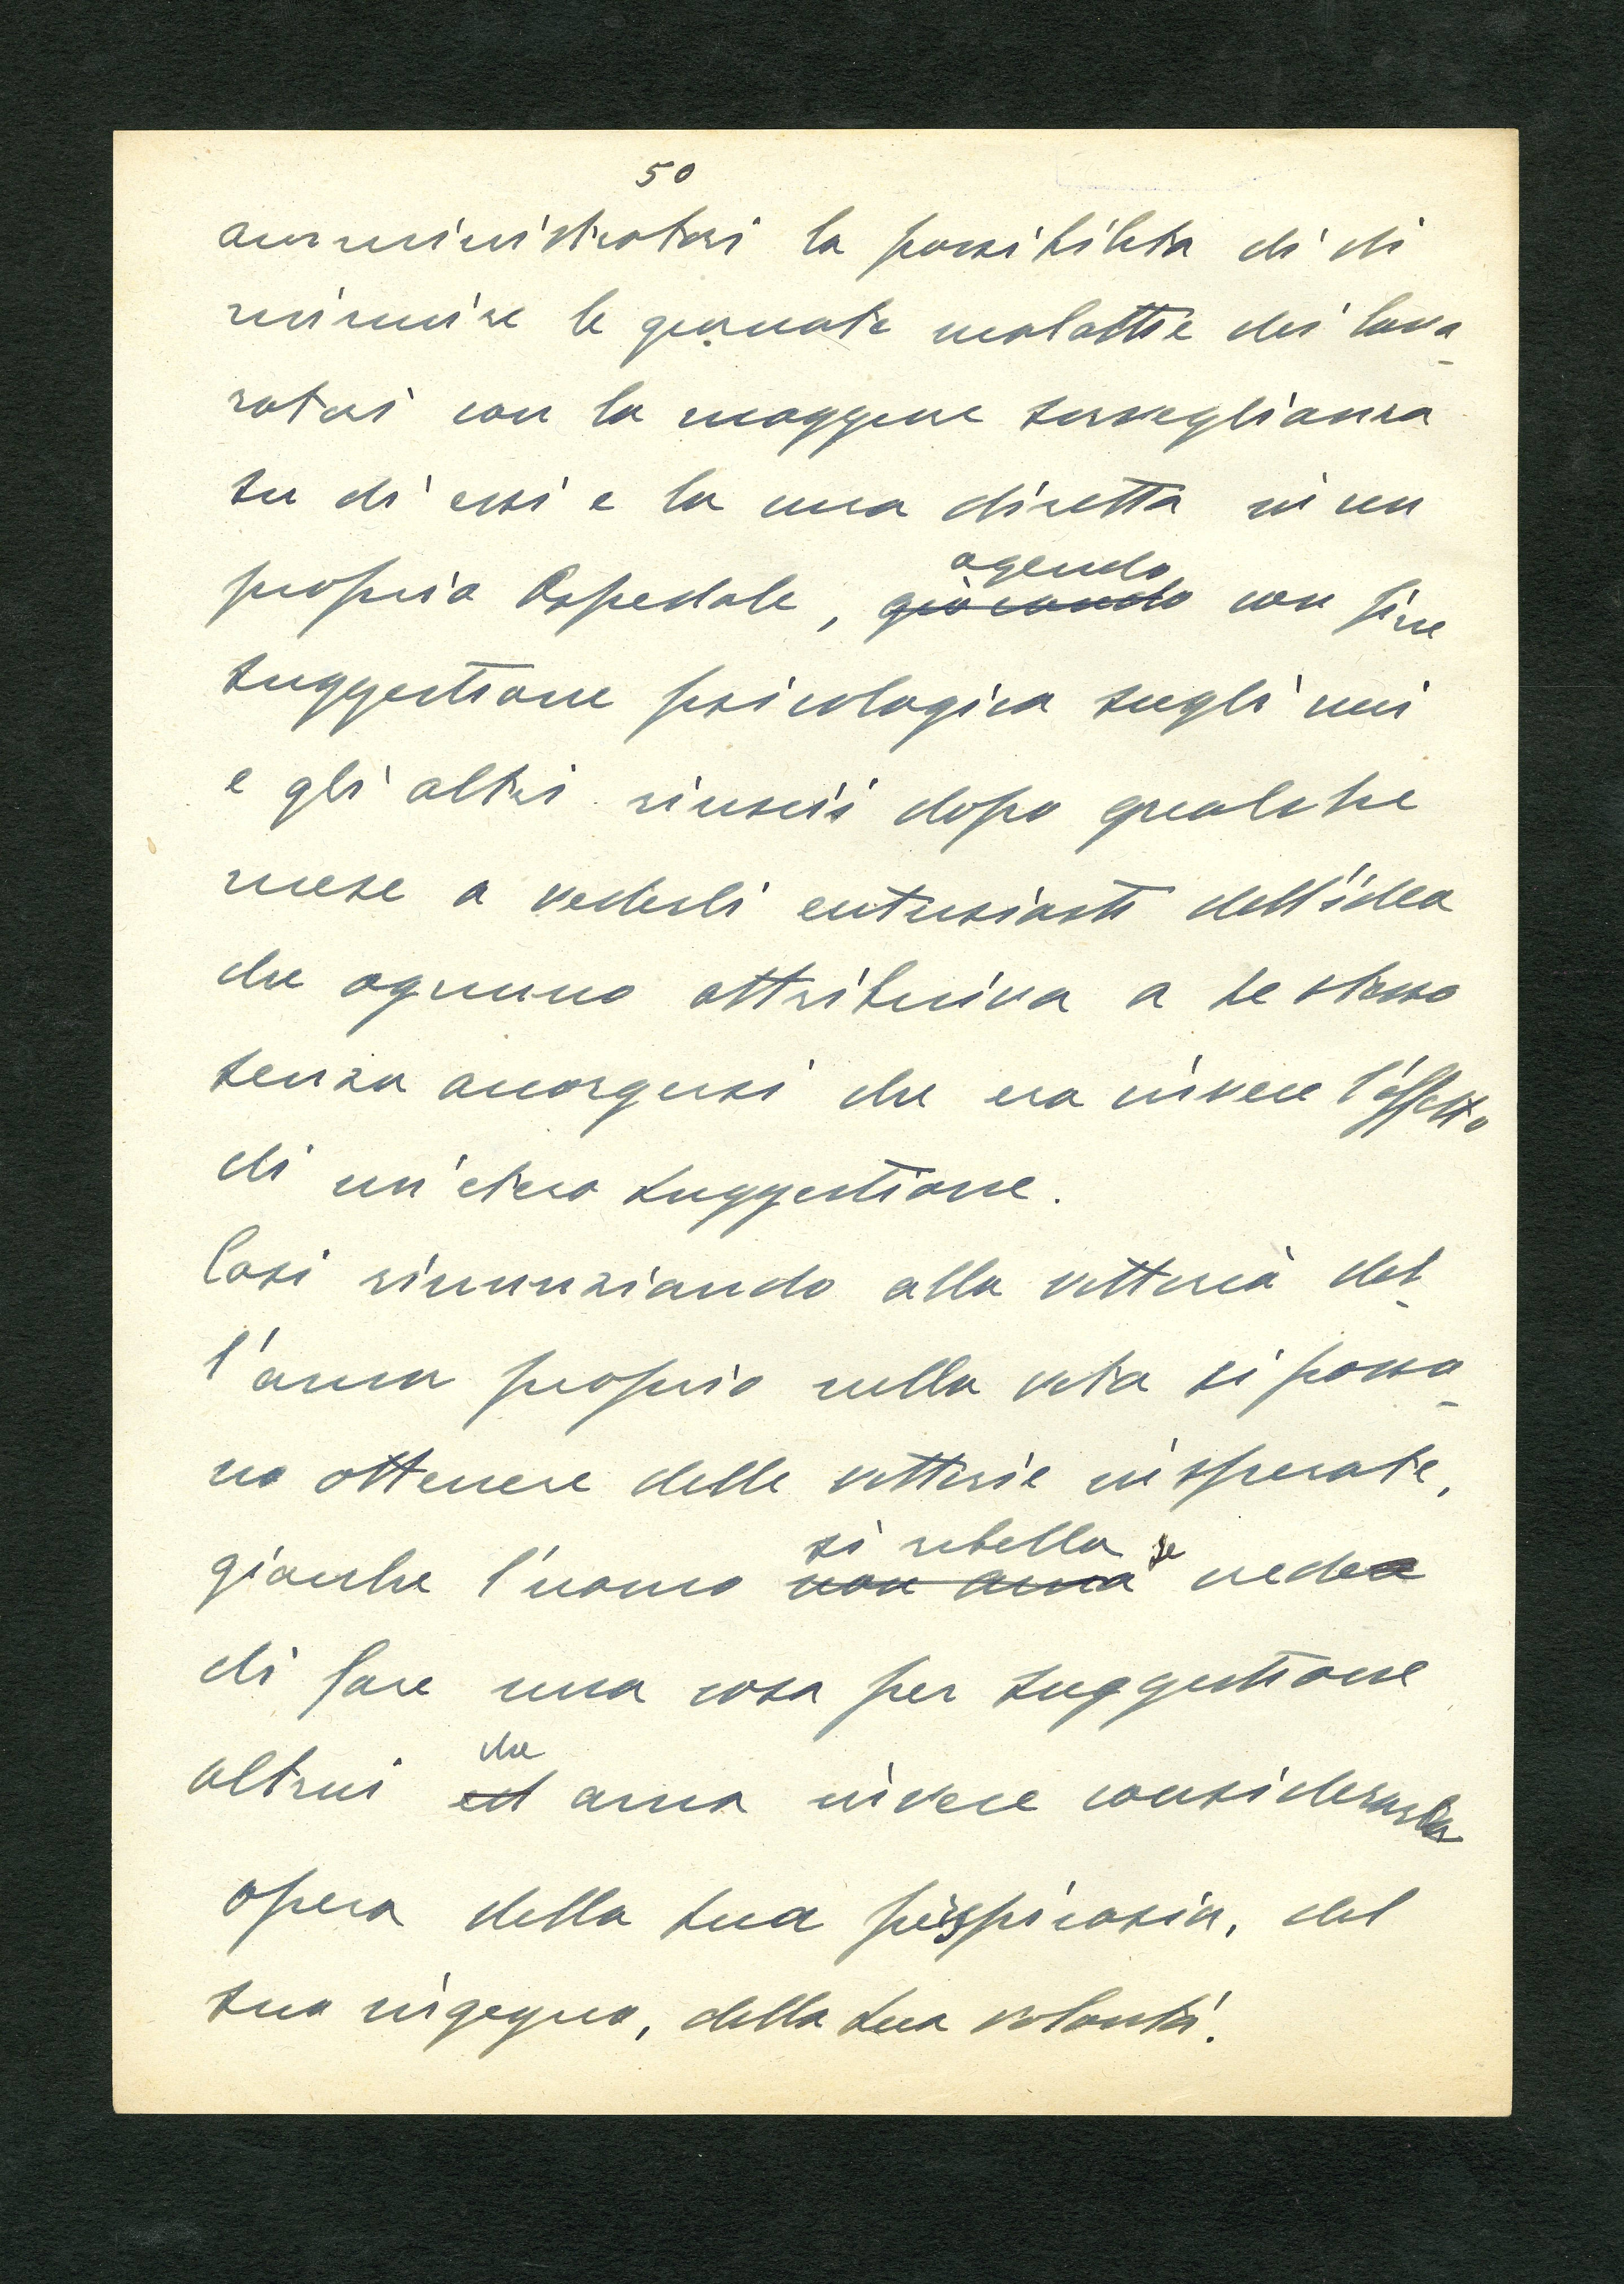 50
amministratori la possibilità di di
minuire le giornate malattie dei lavo_
ratori con la maggiore sorveglianza
su di essi e la cura diretta in un
proprio Ospedale, giocando agendo con fine
suggestione psicologica sugli uni
e gli altri riuscii dopo qualche
mese a vederli entusiasti dell'idea
che ognuno attribuiva a se stesso
senza accorgersi che era invece l'effetto
di un'etero suggestione.
Così rinunziando alla vittoria del_
l'amor proprio nella vita si posso_
no ottenere delle vittorie insperate,
giacche l'uomo non ama si ribella se vede
di fare una cosa per suggestione
altrui ed che ama invece considerarla
opera della sua perspicacia, del
suo ingegno, della sua volontà.